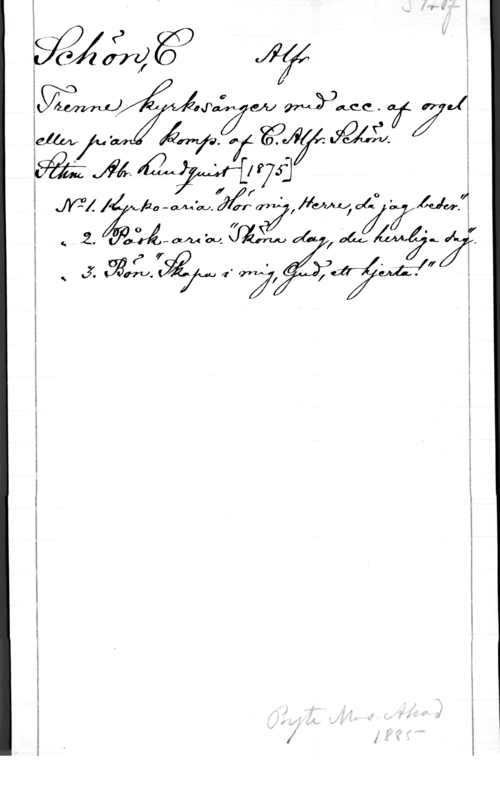 Schön, C Alfr
Trenne kyrkosånger med acc. af orgel
eller piano komp. af C. Alfr. Schön.
Sthm Abr. Rundquist [1875]
No 1. Kyrko-aria. "Hör mig, Herre, då jag beder."
" 2. Påsk-aria. "Sköna dag, du herrliga dag".
" 3. Bön. "Skapa i mig, Gud, ett hjerta!"
Byte Mus. Akad
1885